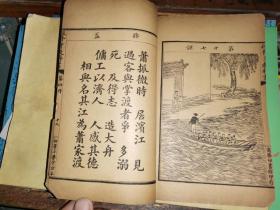 第十七課
蕭振微時 居濱江 見
過客與掌渡者爭 多溺
死 及得志 造大舟
傭工以濟人 人感其德
相與名其江為蕭家渡